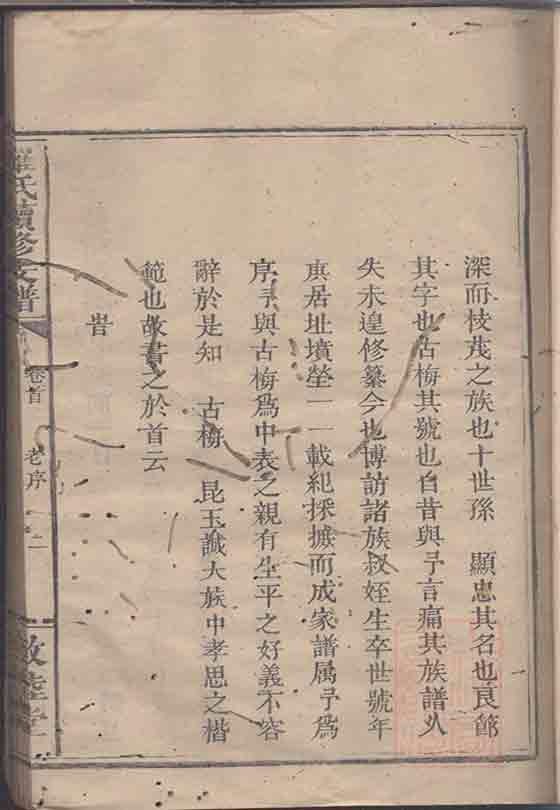 深而枝茂之族也十世孫　顯忠其名也良節
其字也古梅其號也自昔與予言痛其族譜久
失未遑修纂今也博訪諸族叔姪生卒世號年
庚居址墳塋一一載紀採摭而成家譜属予為
序予與古梅為中表之親有生平之好義不容
辭於是知　古梅　昆玉誠大族中孝思之楷
範也故書之於首云
昔
氏續修支譜
卷首
老序
二
敦睦堂